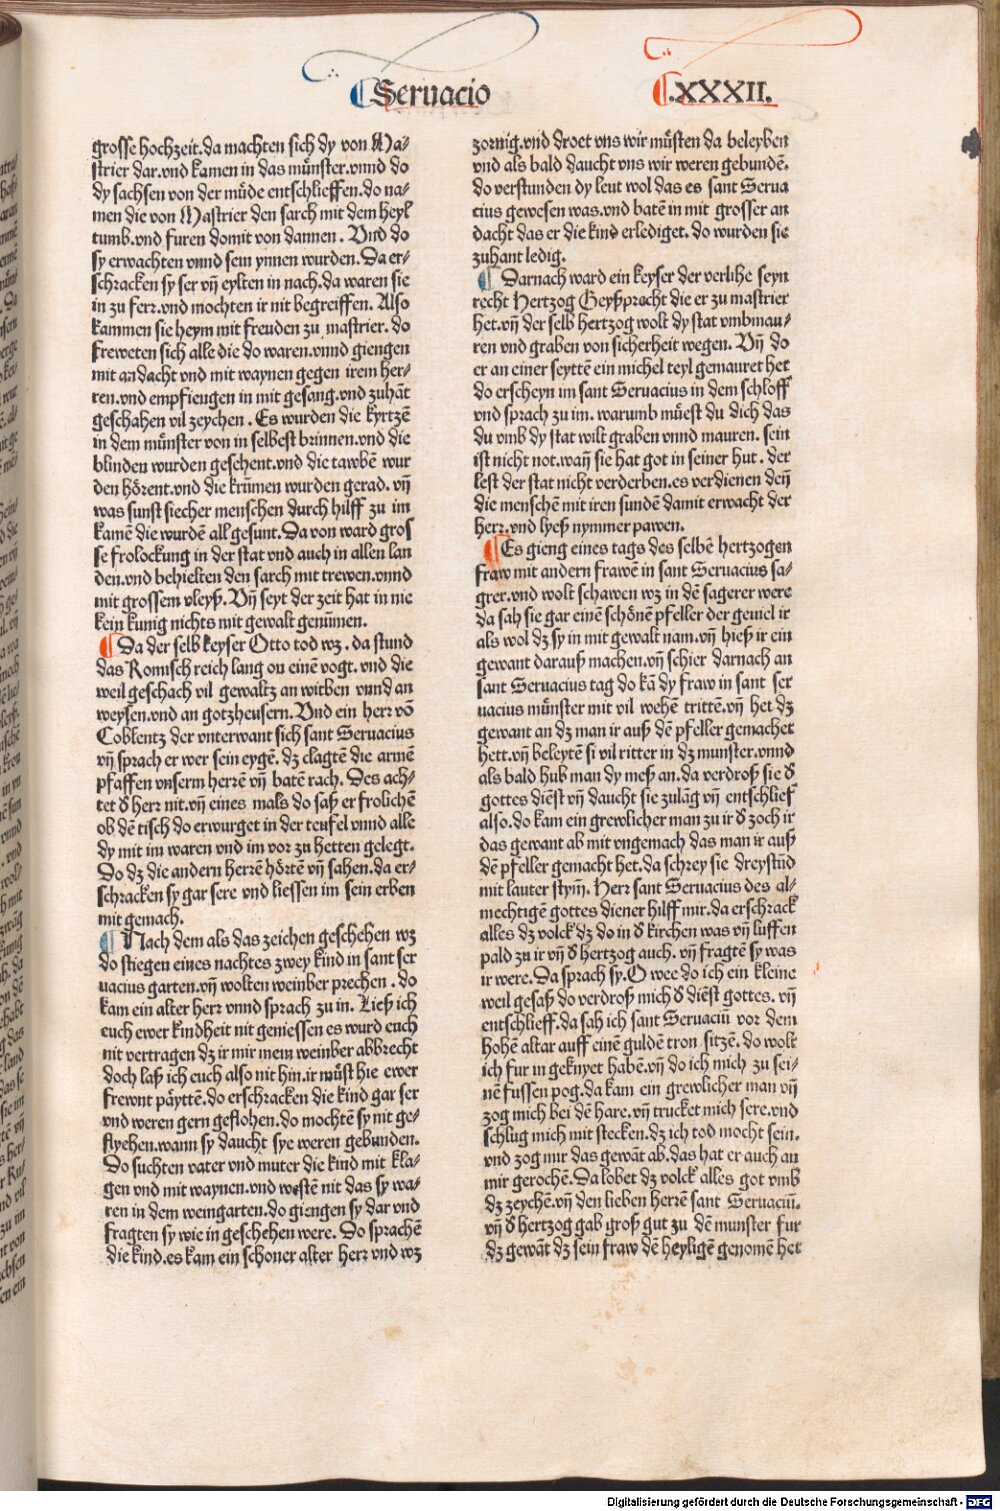 Seruacio
.XXXII.
grosse hochzeit.da machten sich dy von Ma⸗
strier dar.vnd kamen in das mu̇nster.vnnd do
dy sachsen von der mu̇de entschlieffen.do na⸗
men die von Mastrier den sarch mit dem heyl
tumb.vnd furen domit von dannen. Vnd do
sy erwachten vnnd sein ynnen wurden. Da er⸗
schracken sy ser vn̄ eylten in nach.da waren sie
in zu ferr.vnd mochten ir nit begreiffen. Also
kammen sie heym mit freuden zu mastrier. do
freweten sich alle die do waren.vnnd giengen
mit andacht vnd mit waynen gegen irem her⸗
ren.vnd empfiengen in mit gesang.vnd zuhāt
geschahen vil zeychen. Es wurden die kyrtzē
in dem mu̇nster von in selbest brinnen.vnd die
blinden wurden gesehent.vnd die tawbē wur
den hȯrent.vnd die krūmen wurden gerad. vn̄
was sunst siecher menschen durch hilff zu im
kamē die wurdē all gesunt. Da von ward gros
se frolockung in der stat vnd auch in allen lan
den.vnd behielten den sarch mit trewen.vnnd
mit grossem vleyß. Vn̄ seyt der zeit hat in nie
kein kunig nichts mit gewalt genūmen.
Da der selb keyser Otto tod wz. da stund
das Romisch reich lang on einē vogt. vnd die
weil geschach vil gewaltz an witben vnnd an
weysen.vnd an gotzheusern. Vnd ein herr vō
Coblentz der vnterwant sich sant Seruacius
vn̄ sprach er wer sein eygē. dz clagtē die armē
pfaffen vnserm herrē vn̄ batē rach. Des ach⸗
tet d̕ herr nit.vn̄ eines mals do saß er frolichē
ob dē tisch do erwurget in der teufel vnnd alle
dy mit im waren vnd im vor zu hetten gelegt.
Do dz die andern herrē hȯrtē vn̄ sahen. da er⸗
schracken sy gar sere vnd liessen im sein erben
mit gemach.
Nach dem als das zeichen geschehen wz
do stiegen eines nachtes zwey kind in sant ser
uacius garten.vn̄ wolten weinber prechen. do
kam ein alter herr vnnd sprach zu in. Ließ ich
euch ewer kindheit nit geniessen es wurd euch
nit vertragen dz ir mir mein weinber abbrecht
doch laß ich euch also nit hin.ir mu̇st hie ewer
frewnt pȧyttē.do erschracken die kind gar ser
vnd weren gern geflohen.do mochtē sy nit ge⸗
flyehen.wann sy daucht sye weren gebunden.
Do suchten vater vnd muter die kind mit kla⸗
gen vnd mit waynen.vnd westē nit das sy wa⸗
ren in dem weingarten.do giengen sy dar vnd
fragten sy wie in geschehen were. Do sprachē
die kind.es kam ein schoner alter herr vnd wz
zornig.vnd droet vns wir mu̇sten da beleyben
vnd als bald daucht vns wir weren gebundē.
do verstunden dy leut wol das es sant Serua
cius gewesen was.vnd batē in mit grosser an
dacht das er die kind erlediget. do wurden sie
zuhant ledig.
Darnach ward ein keyser der verlihe seyn
recht Hertzog Geyßprecht die er zu mastrier
het.vn̄ der selb hertzog wolt dy stat vmbmau⸗
ren vnd graben von sicherheit wegen. Vn̄ do
er an einer seyttē ein michel teyl gemauret het
do erscheyn im sant Seruacius in dem schloff
vnd sprach zu im. warumb mu̇est du dich das
du vmb dy stat wilt graben vnnd mauren. sein
ist nicht not.wan̄ sie hat got in seiner hut. der
lest der stat nicht verderben.es verdienen den̄
die menschē mit iren sundē damit erwacht der
herr.vnd lyeß nymmer pawen.
Es gieng eines tags des selbē hertzogen
fraw mit andern frawē in sant Seruacius sa⸗
grer.vnd wolt schawen wz in dē sagerer were
da sah sie gar einē schȯnē pfeller der geuiel ir
als wol dz sy in mit gewalt nam.vn̄ hieß ir ein
gewant darauß machen.vn̄ schier darnach an
sant Seruacius tag do kā dy fraw in sant ser
uacius mu̇nster mit vil wehē trittē.vn̄ het dz
gewant an dz man ir auß dē pfeller gemachet
hett.vn̄ beleytē si vil ritter in dz munster.vnnd
als bald hub man dy meß an.da verdroß sie d̕
gottes diēst vn̄ daucht sie zulāg vn̄ entschlief
also.do kam ein grewlicher man zu ir d̕ zoch ir
das gewant ab mit vngemach das man ir auß
dē pfeller gemacht het.da schrey sie dreystūd
mit lauter stym̄. Herr sant Seruacius des al⸗
mechtigē gottes diener hilff mir.da erschrack
alles dz volck dz do in d̕ kirchen was vn̄ luffen
pald zu ir vn̄ d̕ hertzog auch. vn̄ fragtē sy was
ir were. Da sprach sy. O wee do ich ein kleine
weil gesaß do verdroß mich d̕ diēst gottes. vn̄
entschlieff.da sah ich sant Seruaciū vor dem
hohē altar auff einē guldē tron sitzē. do wolt
ich fur in geknyet habē.vn̄ do ich mich zu sei⸗
nē fussen pog.da kam ein grewlicher man vn̄
zog mich bei dē hare. vn̄ trucket mich sere.vnd
schlug mich mit stecken.dz ich tod mocht sein.
vnd zog mir das gewāt ab.das hat er auch an
mir gerochē. Da lobet dz volck alles got vmb
dz zeychē.vn̄ den lieben herrē sant Seruaciū.
vn̄ d̕ hertzog gab groß gut zu dē munster fur
dz gewāt dz sein fraw dē heyligē genomē het
Digitalisierung gefördert durch die Deutsche Forschungsgemeinschaft - DFG